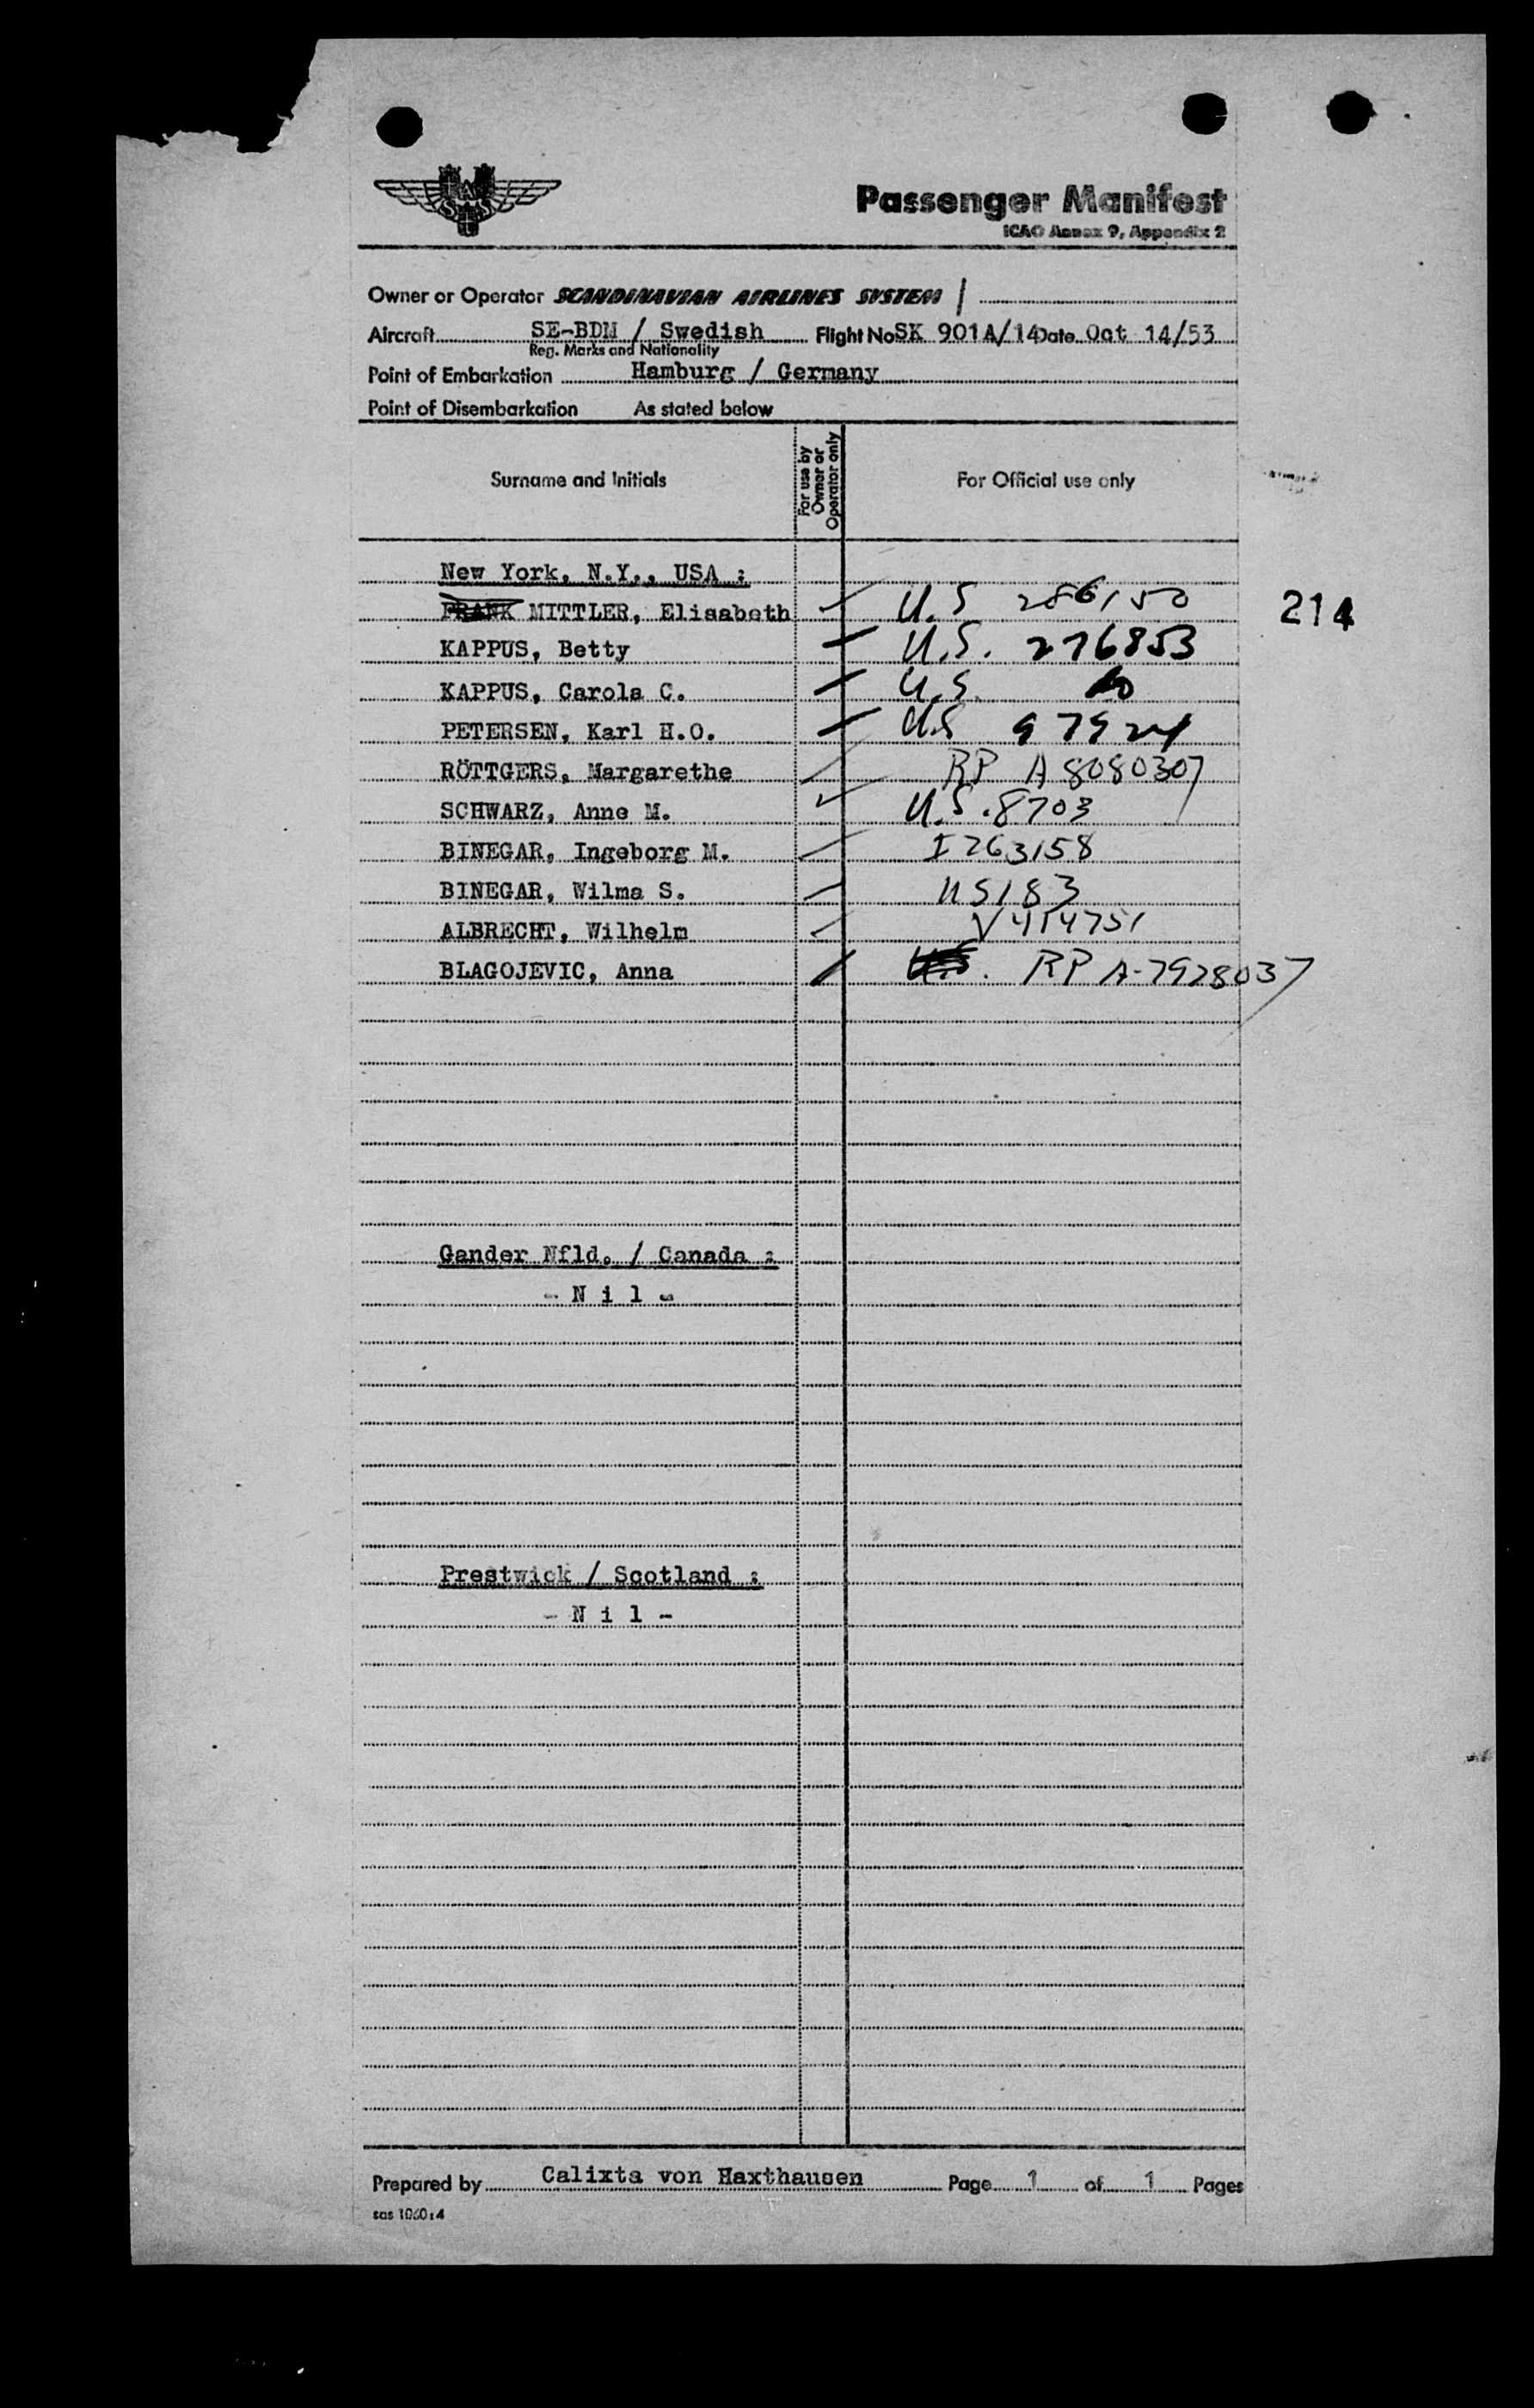 SAS
Passenger Manifest
ICAO Annex 9, Appendix 2
Owner or Operator SCANDINAVIAN AIRLINES SYSTEM /
Aircraft SE-BDM / Swedish Flight No SK 901A/14 Date Oct 14/53
Reg. Marks and Nationality
Point of Embarkation Hamburg / Germany
Point of Disembarkation As stated below
Surname and Initials For use by Owner or Operator only For Official use only
New York, N.Y., USA :
FRANK MITTLER, Elisabeth U.S 286150
214
KAPPUS, Betty U.S. 276853
KAPPUS, Carola C. U.S.
PETERSEN, Karl H.O. U.S 97924
RÖTTGERS, Margarethe RP A 8080307
SCHWARZ, Anne M. U.S. 8703
BINEGAR, Ingeborg M. I 263158
BINEGAR, Wilma S. US183
ALBRECHT, Wilhelm V414751
BLAGOJEVIC, Anna U.S. RP A-7928037
Gander Nfld. / Canada :
- N i l -
Prestwick / Scotland :
- N i l -
Prepared by Calixta von Haxthausen Page 1 of 1 Pages
sas 1060:4